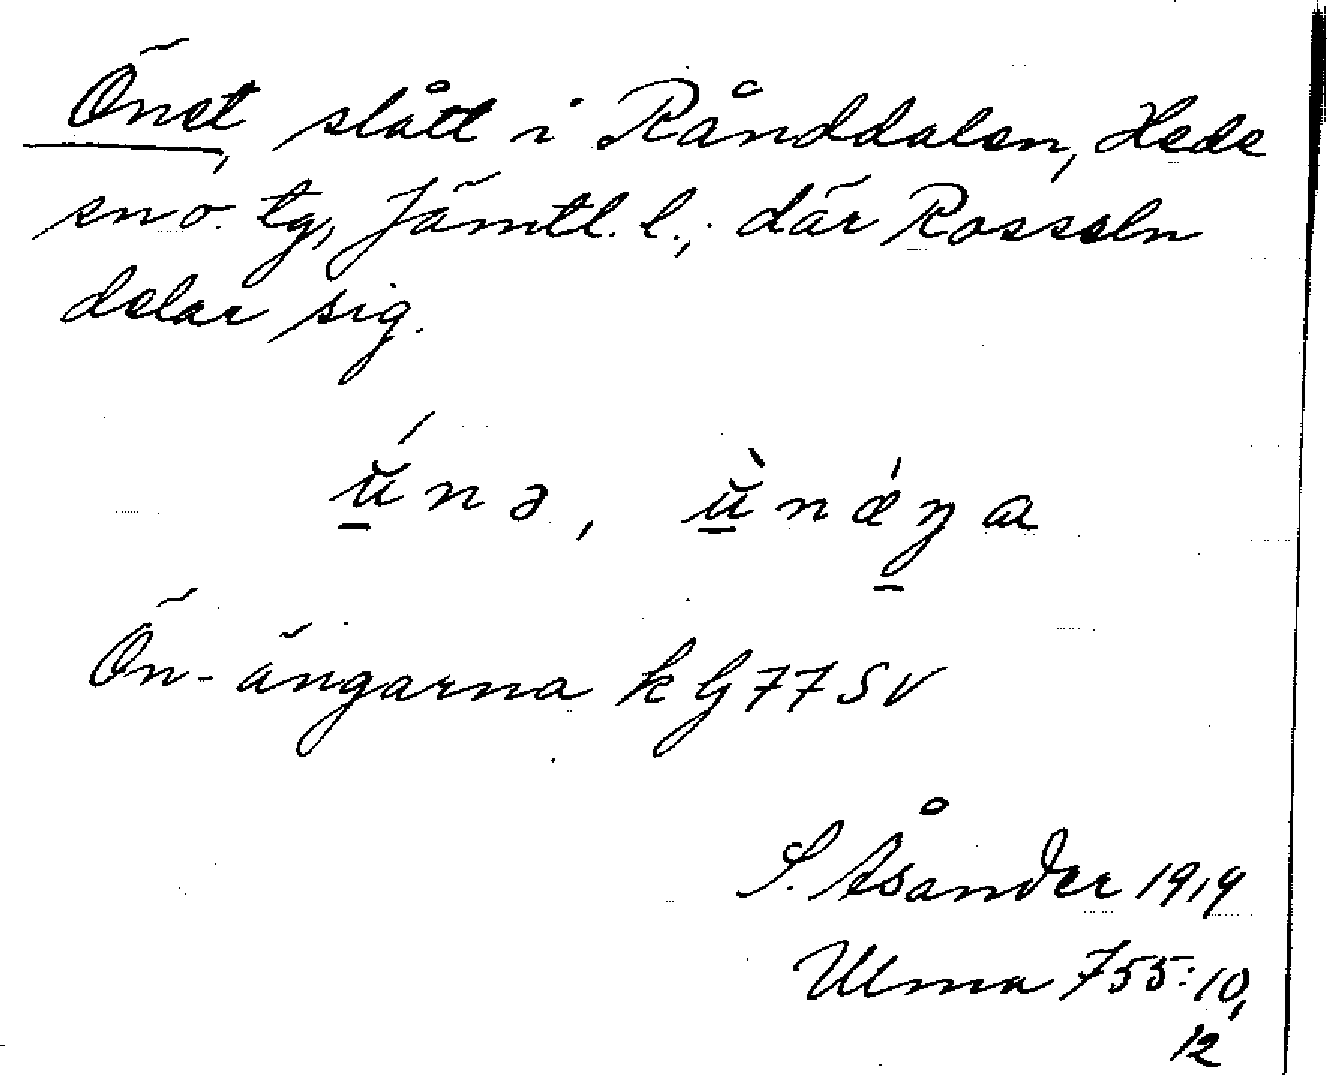 Önet, slått i Rånddalen, Hede
sn o. tg, Jämtl. l., där Rosseln
delar sig.
ú̱nə, ù̱nǽŋa
Ön-ängarna k G 77 SV
S. Åsander 1919
Ulma 755:10,
12